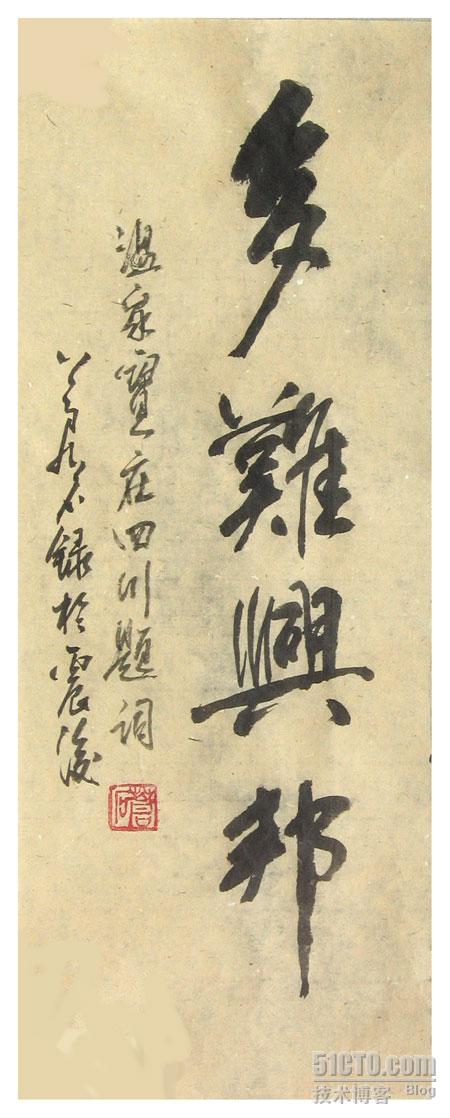 多難興邦
温家寶在四川題詞
録於震後
51CTO.com
技术博客 Blog